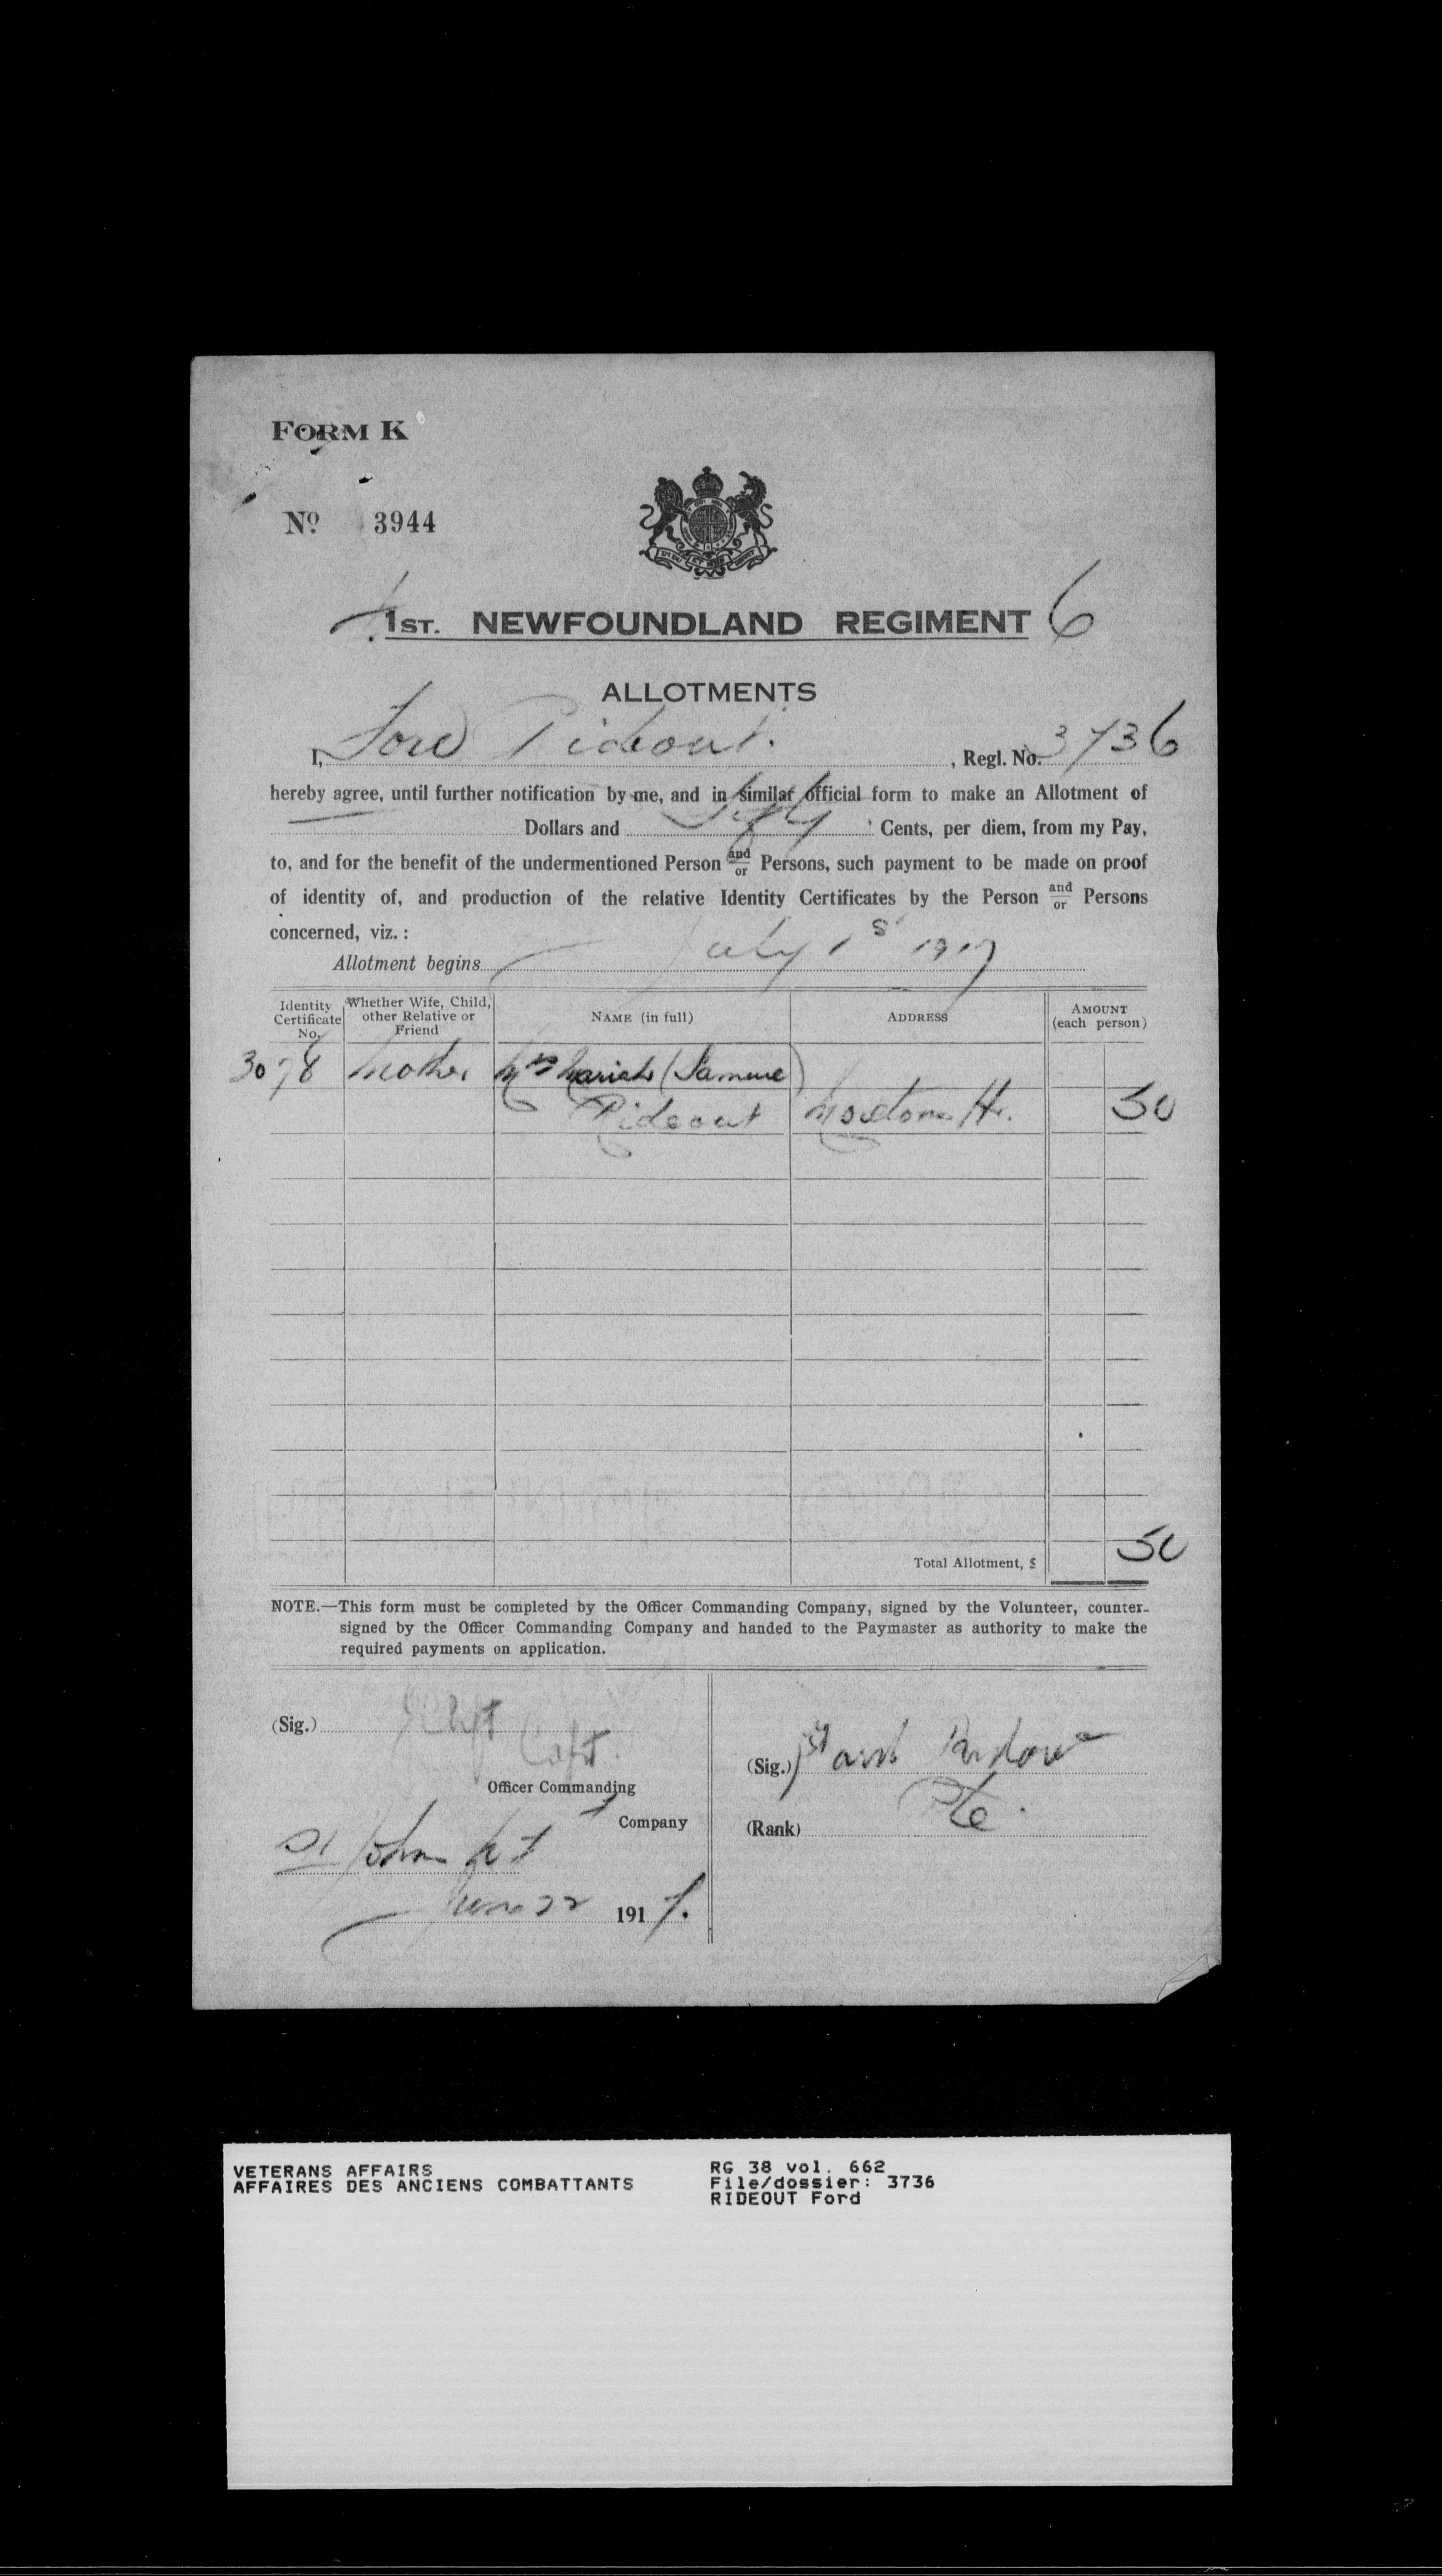 FORM K
No. 3944
1ST. NEWFOUNDLAND REGIMENT 6
ALLOTMENTS
I, Ford Rideout. , Regl. No. 3736
hereby agree, until further notification by me, and in similar official form to make an Allotment of
Dollars and fifty Cents, per diem, from my Pay,
to, and for the benefit of the undermentioned Person and/or Persons, such payment to be made on proof
of identity of, and production of the relative Identity Certificates by the Person and/or Persons
concerned, viz. :
Allotment begins July 1st 1917
Identity Certificate No. Whether Wife, Child, other Relative or Friend NAME (in full) ADDRESS AMOUNT (each person)
3078 Mother Mrs Mariah (Samuel)
Rideout Moretons Hr. 50
Total Allotment, $ 50
NOTE.—This form must be completed by the Officer Commanding Company, signed by the Volunteer, counter-
signed by the Officer Commanding Company and handed to the Paymaster as authority to make the
required payments on application.
(Sig.)
Capt.
Officer Commanding
Company
St John's
June 22 1917.
(Sig.)
(Rank) Pte.
VETERANS AFFAIRS
AFFAIRES DES ANCIENS COMBATTANTS
RG 38 vol. 662
File/dossier: 3736
RIDEOUT Ford